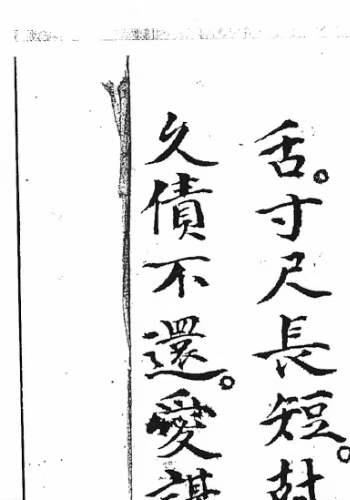 舌。寸尺長短。
久債不還。愛